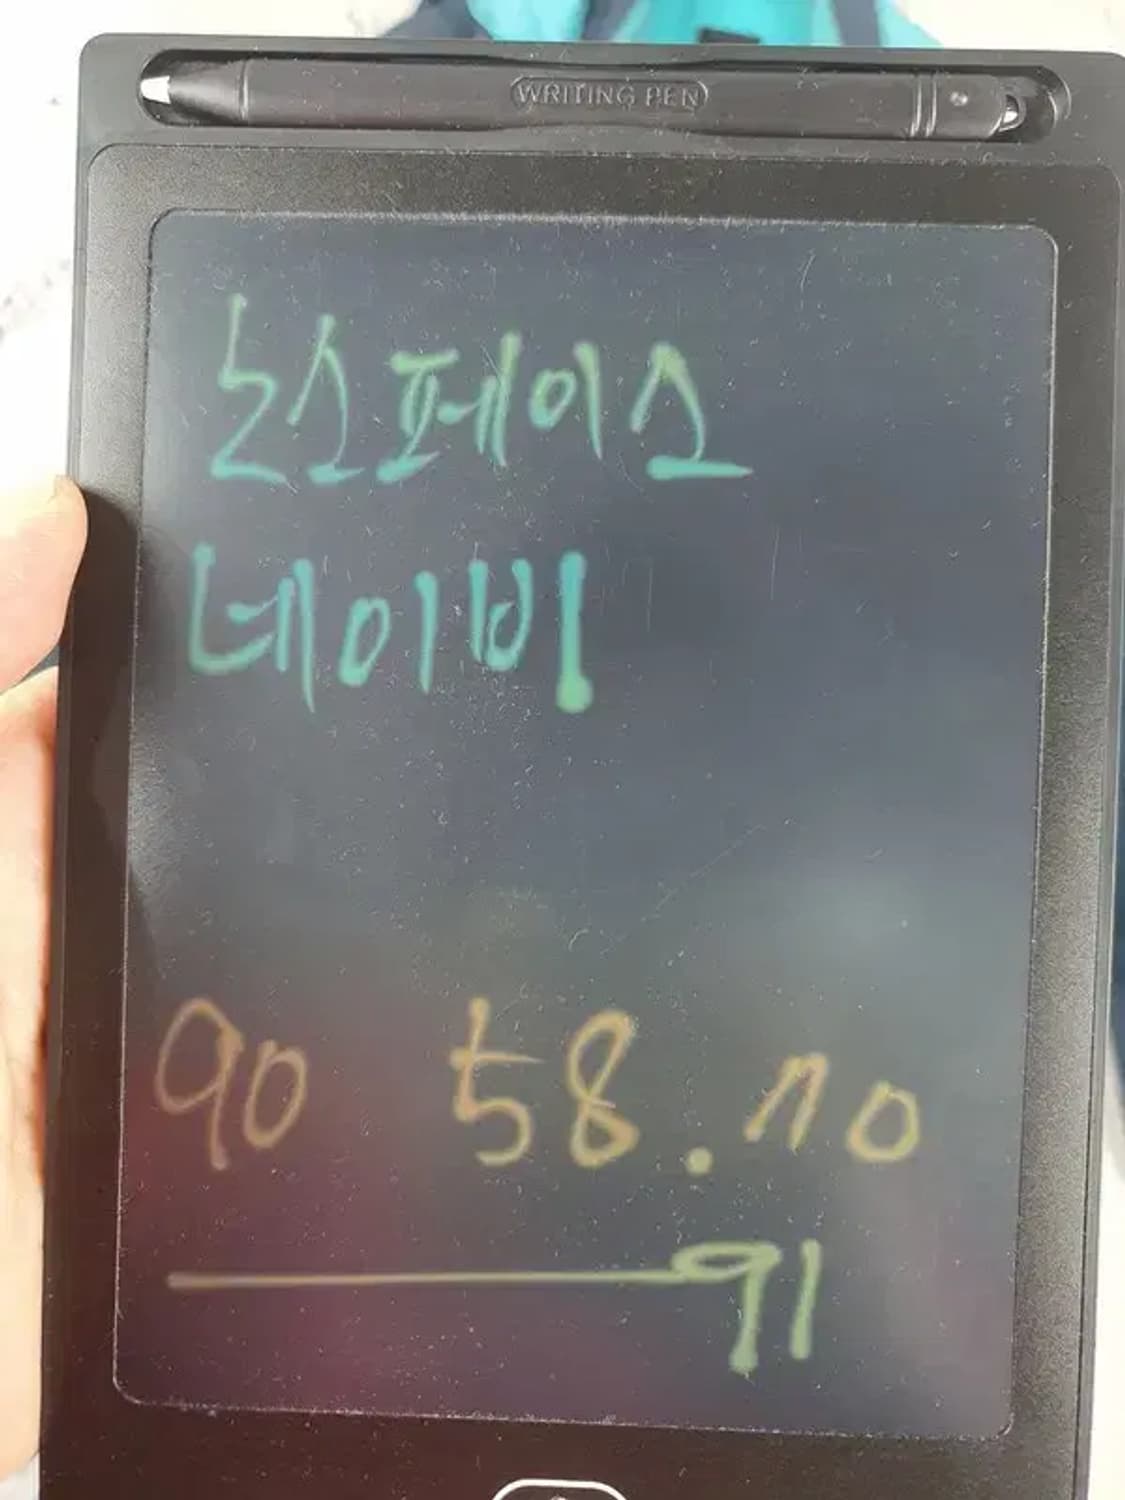 WRITING PEN
노스페이스
네이비
90 58.70
91